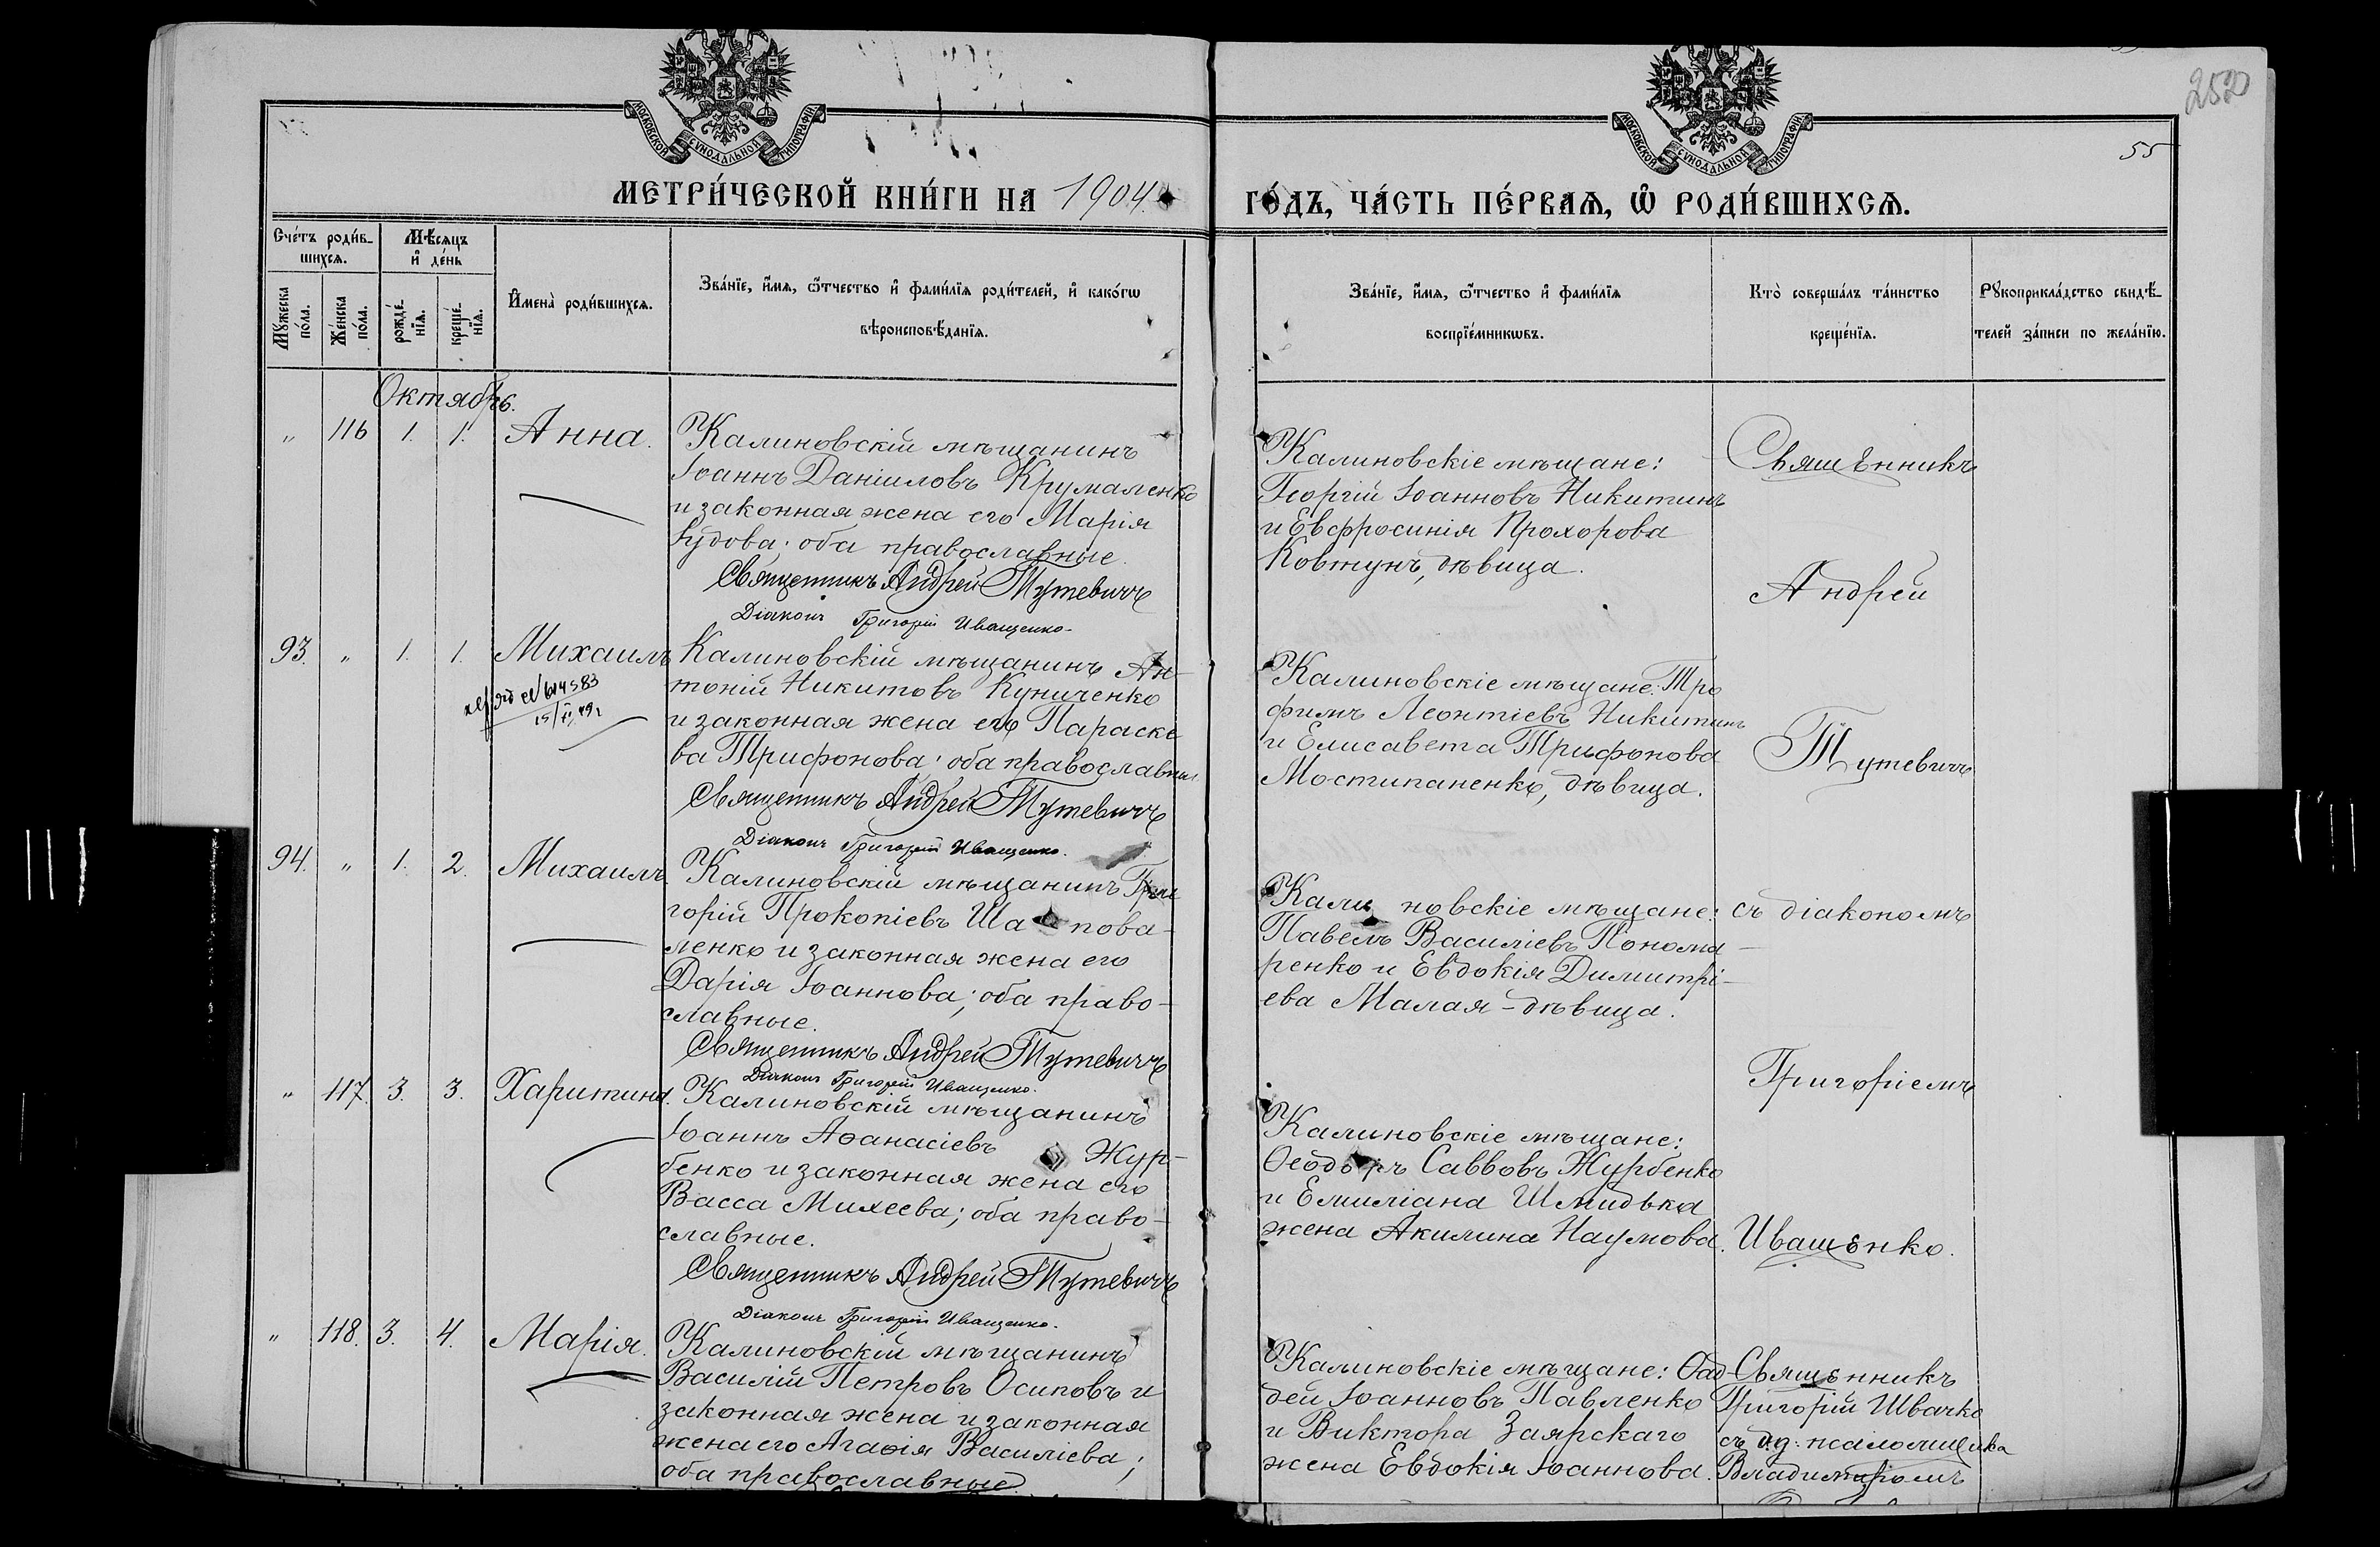 МОСКОВСКОЙ СУНОДАЛЬНОЙ ТИПОГРАФІИ
МОСКОВСКОЙ СУНОДАЛЬНОЙ ТИПОГРАФІИ
252
55
МЕТРИ́ЧЕСКОЙ КНИ́ГИ НА 1904
ГО́ДЪ, ЧА́СТЬ ПЕ́РВАѦ, Ѡ҆ РОДИ́ВШИХСѦ.
Сче́тъ роди́в-
шихсѧ.
Мѣ́сѧцъ
и҆ де́нь
Мꙋ́жеска
по́ла.
Же́нска
по́ла.
рожде́-
нїѧ.
креще́-
нїѧ.
И҆мена̀ роди́вшихсѧ.
Зва́нїе, и҆́мѧ, ѻ҆́тчество и҆ фами́лїѧ роди́телей, и҆ како́гѡ
вѣроисповѣ́данїѧ.
Зва́нїе, и҆́мѧ, ѻ҆́тчество и҆ фами́лїѧ
воспрїе́мникѡвъ.
Кто̀ соверша́лъ та́инство
креще́нїѧ.
Рꙋкоприкла́дство свидѣ́-
телей за́писи по жела́нїю.
Октябрь.
" 116 1. 1. Анна.
Калиновскій мѣщанинъ
Іоаннъ Даніиловъ Крумаленко
и законная жена его Марія
Іудова; оба православные.
Священникъ Андрей Тутевичъ
Діаконъ Григорій Иващенко.
Калиновскіе мѣщане:
Георгій Іоанновъ Никитинъ
и Евфросинія Прохорова
Ковтунъ, дѣвица.
Священникъ
Андрей
93. " 1. 1. Михаилъ
№ 614583
Калиновскій мѣщанинъ Ан-
тоній Никитовъ Куниченко
и законная жена его Параске
ва Трифонова; оба православные
Священникъ Андрей Тутевичъ
Діаконъ Григорій Иващенко.
Калиновскіе мѣщане: Тро
фимъ Леонтіевъ Никитинъ
и Елисавета Трифонова
Мостипаненко, дѣвица.
Тутевичъ
94. " 1. 2. Михаилъ.
Калиновскій мѣщанинъ Гри
горій Прокопіевъ Ша пова-
ленко и законная жена его
Дарія Іоаннова; оба право-
славные.
Священникъ Андрей Тутевичъ
Діаконъ Григорій Иващенко.
Кали новскіе мѣщане:
Павелъ Василіевъ Понома-
ренко и Евдокія Димитрі-
ева Малая - дѣвица.
съ діакономъ
Григоріемъ
" 117. 3. 3. Харитина.
Калиновскій мѣщанинъ
Іоаннъ Аѳанасіевъ Жур-
бенко и законная жена его
Васса Михеева; оба право-
славные.
Священникъ Андрей Тутевичъ
Діаконъ Григорій Иващенко.
Калиновскіе мѣщане:
Ѳеодоръ Саввовъ Журбенко
и Емиліана Шмидька
жена Акилина Наумова.
Иващенко.
" 118. 3. 4. Марія.
Калиновскій мѣщанинъ
Василій Петровъ Осиповъ и
законная жена и законная
жена его Агаѳія Василіева;
оба православные.
Калиновскіе мѣщане: Ѳад-
дей Іоанновъ Павленко
и Виктора Заярскаго
жена Евдокія Іоаннова.
Священникъ
Григорій Швачко
съ и.д. псаломщика
Владиміромъ